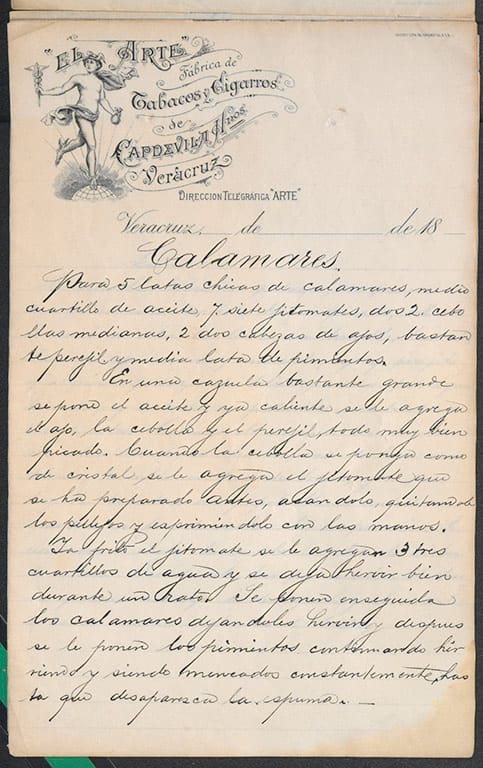 "EL ARTE"
Fábrica de
Tabacos y Cigarros
de
CAPDEVILA Hnos.
Veracruz
DIRECCION TELEGRÁFICA "ARTE"
Veracruz, de de 18
Calamares.
Para 5 latas chicas de calamares, medio
cuartillo de aceite, 7. siete jitomates, dos 2. cebo
llas medianas, 2 dos cabezas de ajos, bastan
te perejil y media lata de pimentos.
En una cazuela bastante grande
se pone el aceite y ya caliente se le agrega
el ajo, la cebolla y el perejil, todo muy bien
picado. Cuando la cebolla se ponga como
de cristal, se le agrega el jitomate que
se ha preparado antes, asandolo, quitandole
los pellejos y esprimiendolo con las manos.
Ya frito el jitomate se le agregan 3 tres
cuartillos de agua y se deja hervir bien
durante un rato. Se ponen enseguida
los calamares dejandoles hervir y despues
se le ponen los pimientos continuando hir
viendo y siendo meneados constantemente, has
ta que desaparesca la espuma. —